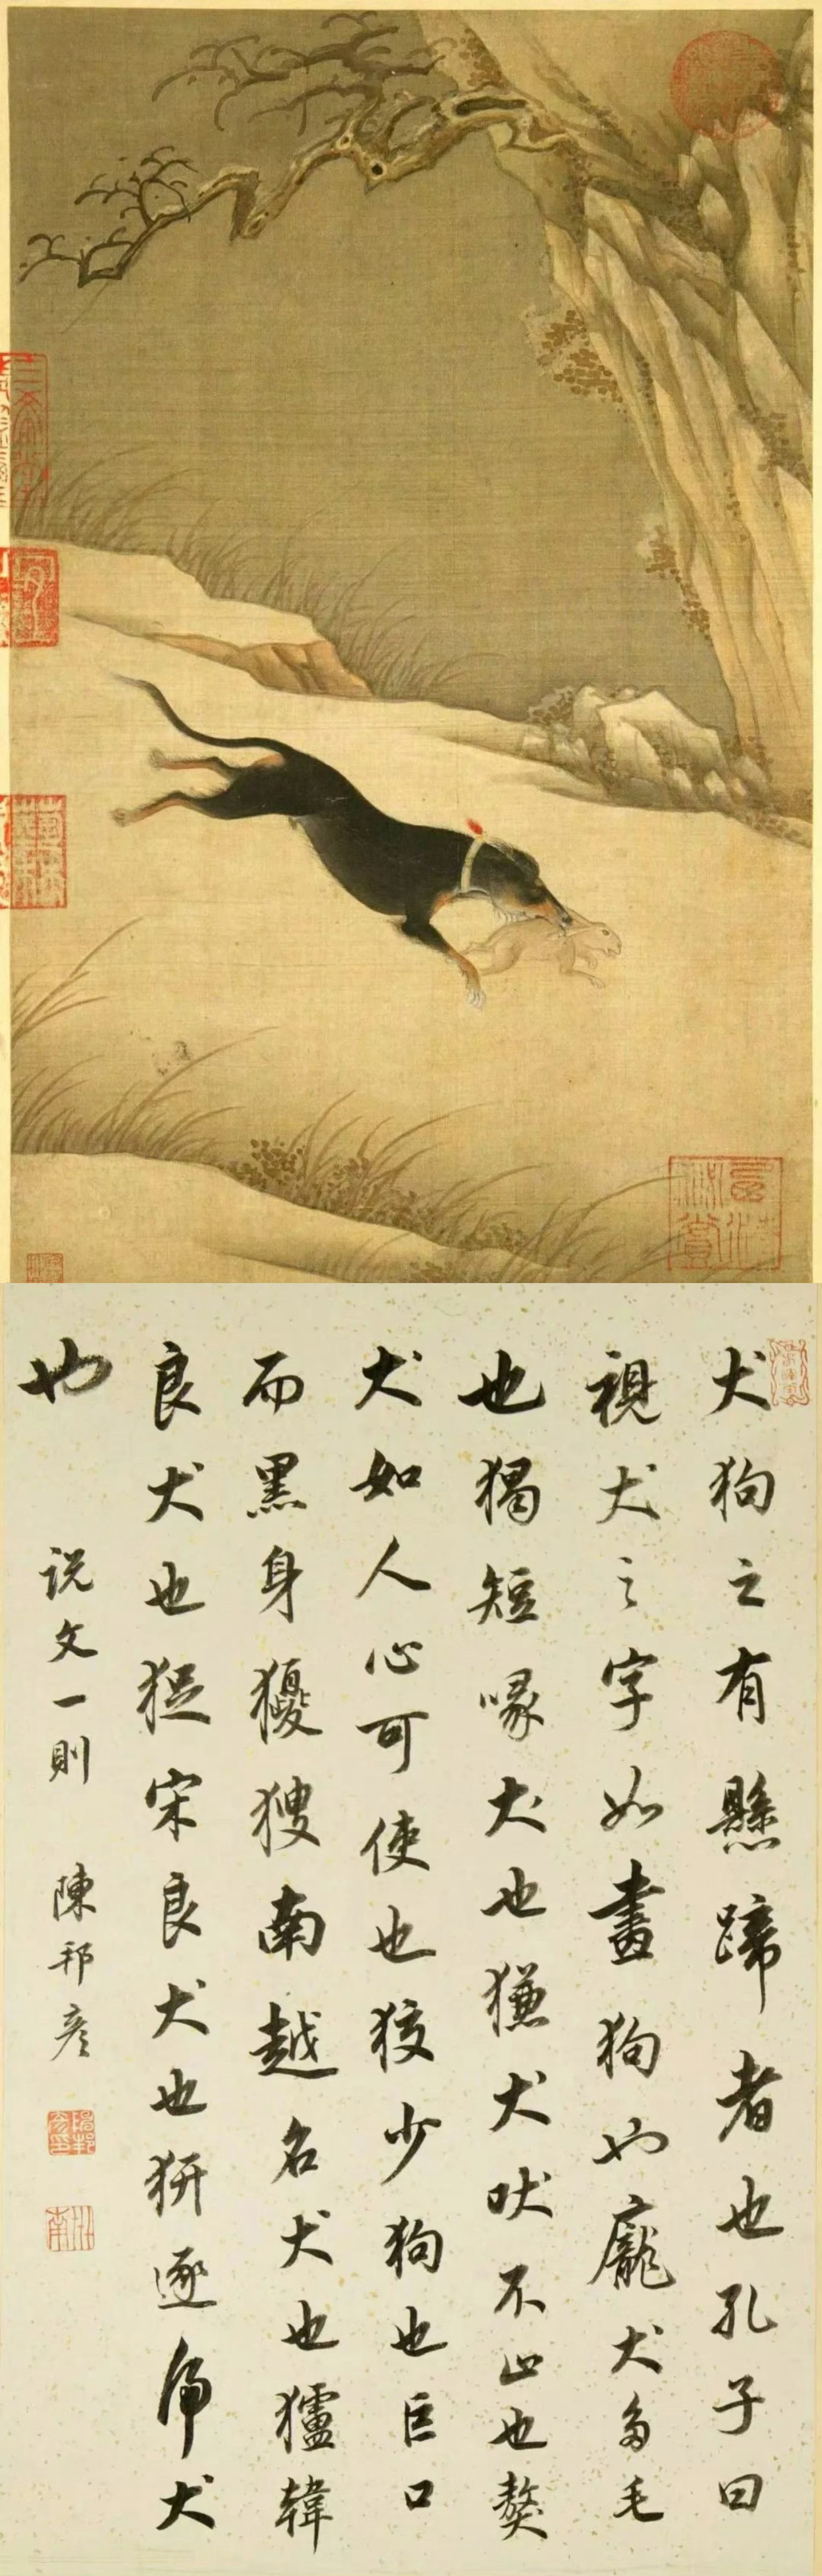 犬狗之有懸蹄者也孔子曰
視犬之字如畫狗也龐犬多毛
也猲短喙犬也獫犬吠不止也獒
犬如人心可使也狡少狗也巨口
而黑身獿獀南越名犬也獹韓
良犬也猑宋良犬也犴逐虎犬
也
说文一則
陳邦彥